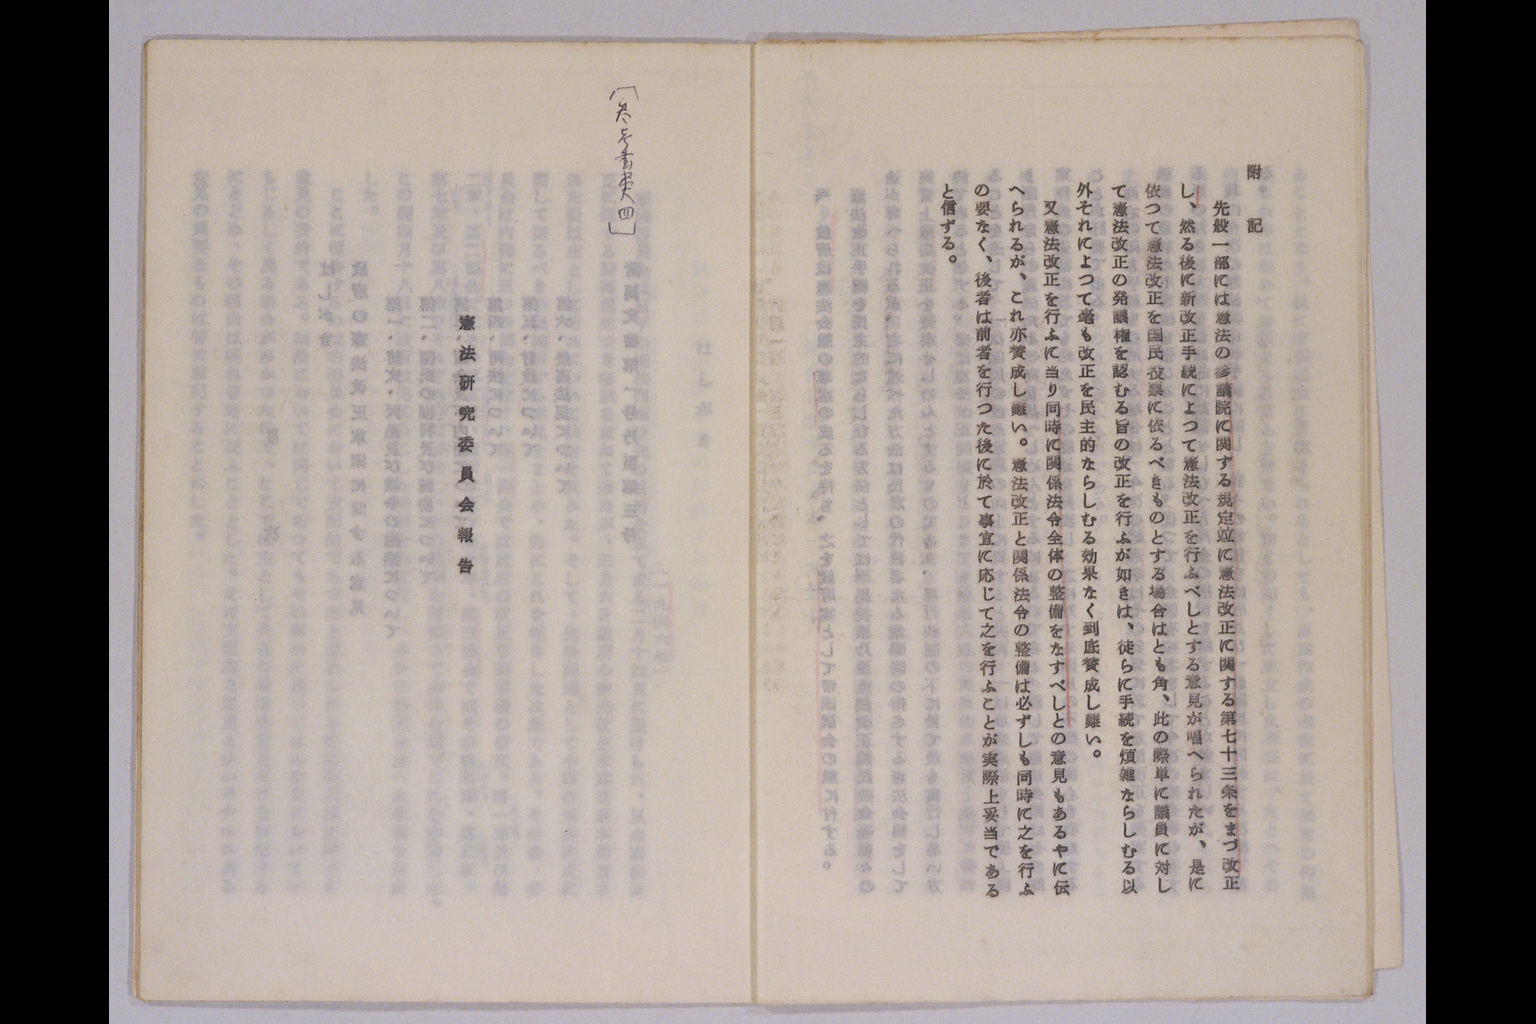 附記
先般一部には憲法の参議院に関する規定竝に憲法改正に関する第七十三条をまづ改正
し、然る後に新改正手続によつて憲法改正を行ふべしとする意見が唱へられたが、是に
依つて憲法改正を国民投票に依るべきものとする場合はとも角、此の際単に議員に対し
て憲法改正の発議権を認むる旨の改正を行ふが如きは、徒らに手続を煩雑ならしむる以
外それによつて毫も改正を民主的ならしむる効果なく到底賛成し難い。
又憲法改正を行ふに当り同時に関係法令全体の整備をなすべしとの意見もあるやに伝
へられるが、これ亦賛成し難い。憲法改正と関係法令の整備は必ずしも同時に之を行ふ
の要なく、後者は前者を行つた後に於て事宜に応じて之を行ふことが実際上妥当である
と信ずる。
〔参考書類四〕
憲法研究委員会報告